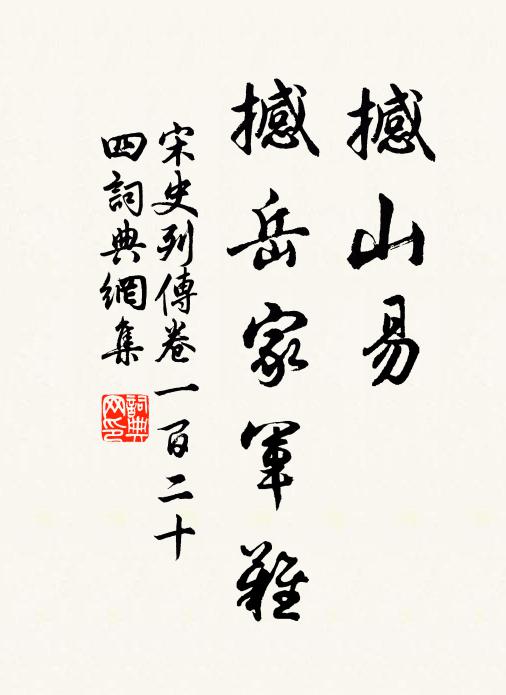 撼山易
撼岳家軍難
宋史列傳卷一百二十
四詞典網集
詞典网印